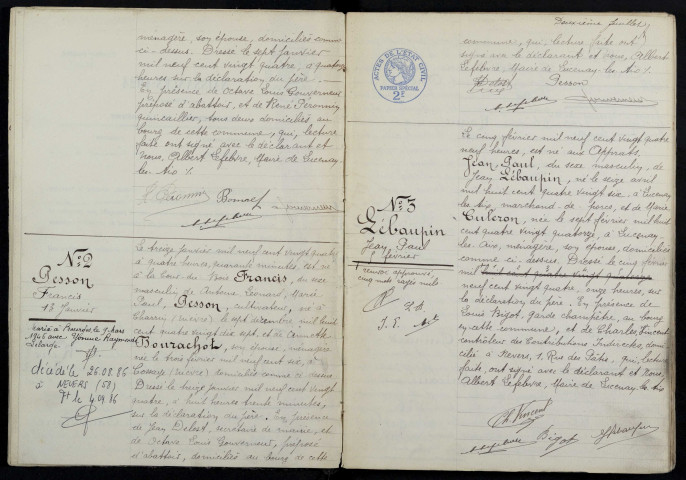 ménagère, son épouse, domiciliés comme
ci-dessus. Dressé le sept janvier
mil neuf cent vingt quatre, à quatorze
heures sur la déclaration du père.
En présence de Octave Louis Gouverneur
préposé d'abattoir, et de René Péronnin
quincailler, tous deux domiciliés au
bourg de cette commune, qui, lecture
faite ont signé avec le déclarant et
Nous, Albert Lefebvre, Maire de Lucenay-
les-Aix
No 2
Besson
Francis
13 Janvier
marié à
1946 avec Yvonne Raymonde
décédé le 25.08.86
à NEVERS (58)
Le treize janvier mil neuf cent vingt quatre
à quatre heures quarante minutes, est né
Francis, du sexe
masculin de Antoine Léonard Marie
Paul, Besson, cultivateur, né à
Charrin (Nièvre) le sept décembre mil huit
cent quatre vingt dix sept et de
Bourachot, son épouse, ménagère
née le trois février mil neuf cent six, à
Cossaye (Nièvre) domiciliés comme ci-dessus
Dressé le treize janvier mil neuf cent vingt
quatre, à huit heures trente minutes,
sur la déclaration du père. En présence
de Jean Debost, secrétaire de mairie, et
de Octave Louis Gouverneur, préposé
d'abattoir, domiciliés au bourg de cette
Deuxième feuillet
commune, qui, lecture faite ont
signé avec le déclarant et Nous, Albert
Lefebvre, Maire de Lucenay-les-Aix
Besson
ACTES DE L'ÉTAT CIVIL
PAPIER SPÉCIAL
2F
No 3
Lébaupin
Jean Paul
5 février
Le cinq février mil neuf cent vingt quatre
neuf heures, est né aux Apprats
Jean Paul, du sexe masculin, de
Jean Lébaupin, né le seize avril
mil huit cent quatre vingt six à Lucenay-
les-Aix marchand de porcs, et de Marie
Culeron, née le sept février mil huit
cent quatre vingt quatorze, à Lucenay-
les-Aix, ménagère, son épouse, domiciliés
comme ci-dessus. Dressé le cinq février
mil huit cent quatre vingt quatorze
neuf cent vingt quatre, onze heures, sur
la déclaration du père. En présence de
Louis Bigot, garde champêtre, au bourg
de cette commune, et de Charles Vincent
contrôleur des Contributions Indirectes, domi-
cilié à Nevers, 1 Rue des Fatés. qui, lecture
faite, ont signé avec le déclarant et Nous,
Albert Lefebvre, Maire de Lucenay-les-Aix
Ch Vincent
Bigot
JLebaupin